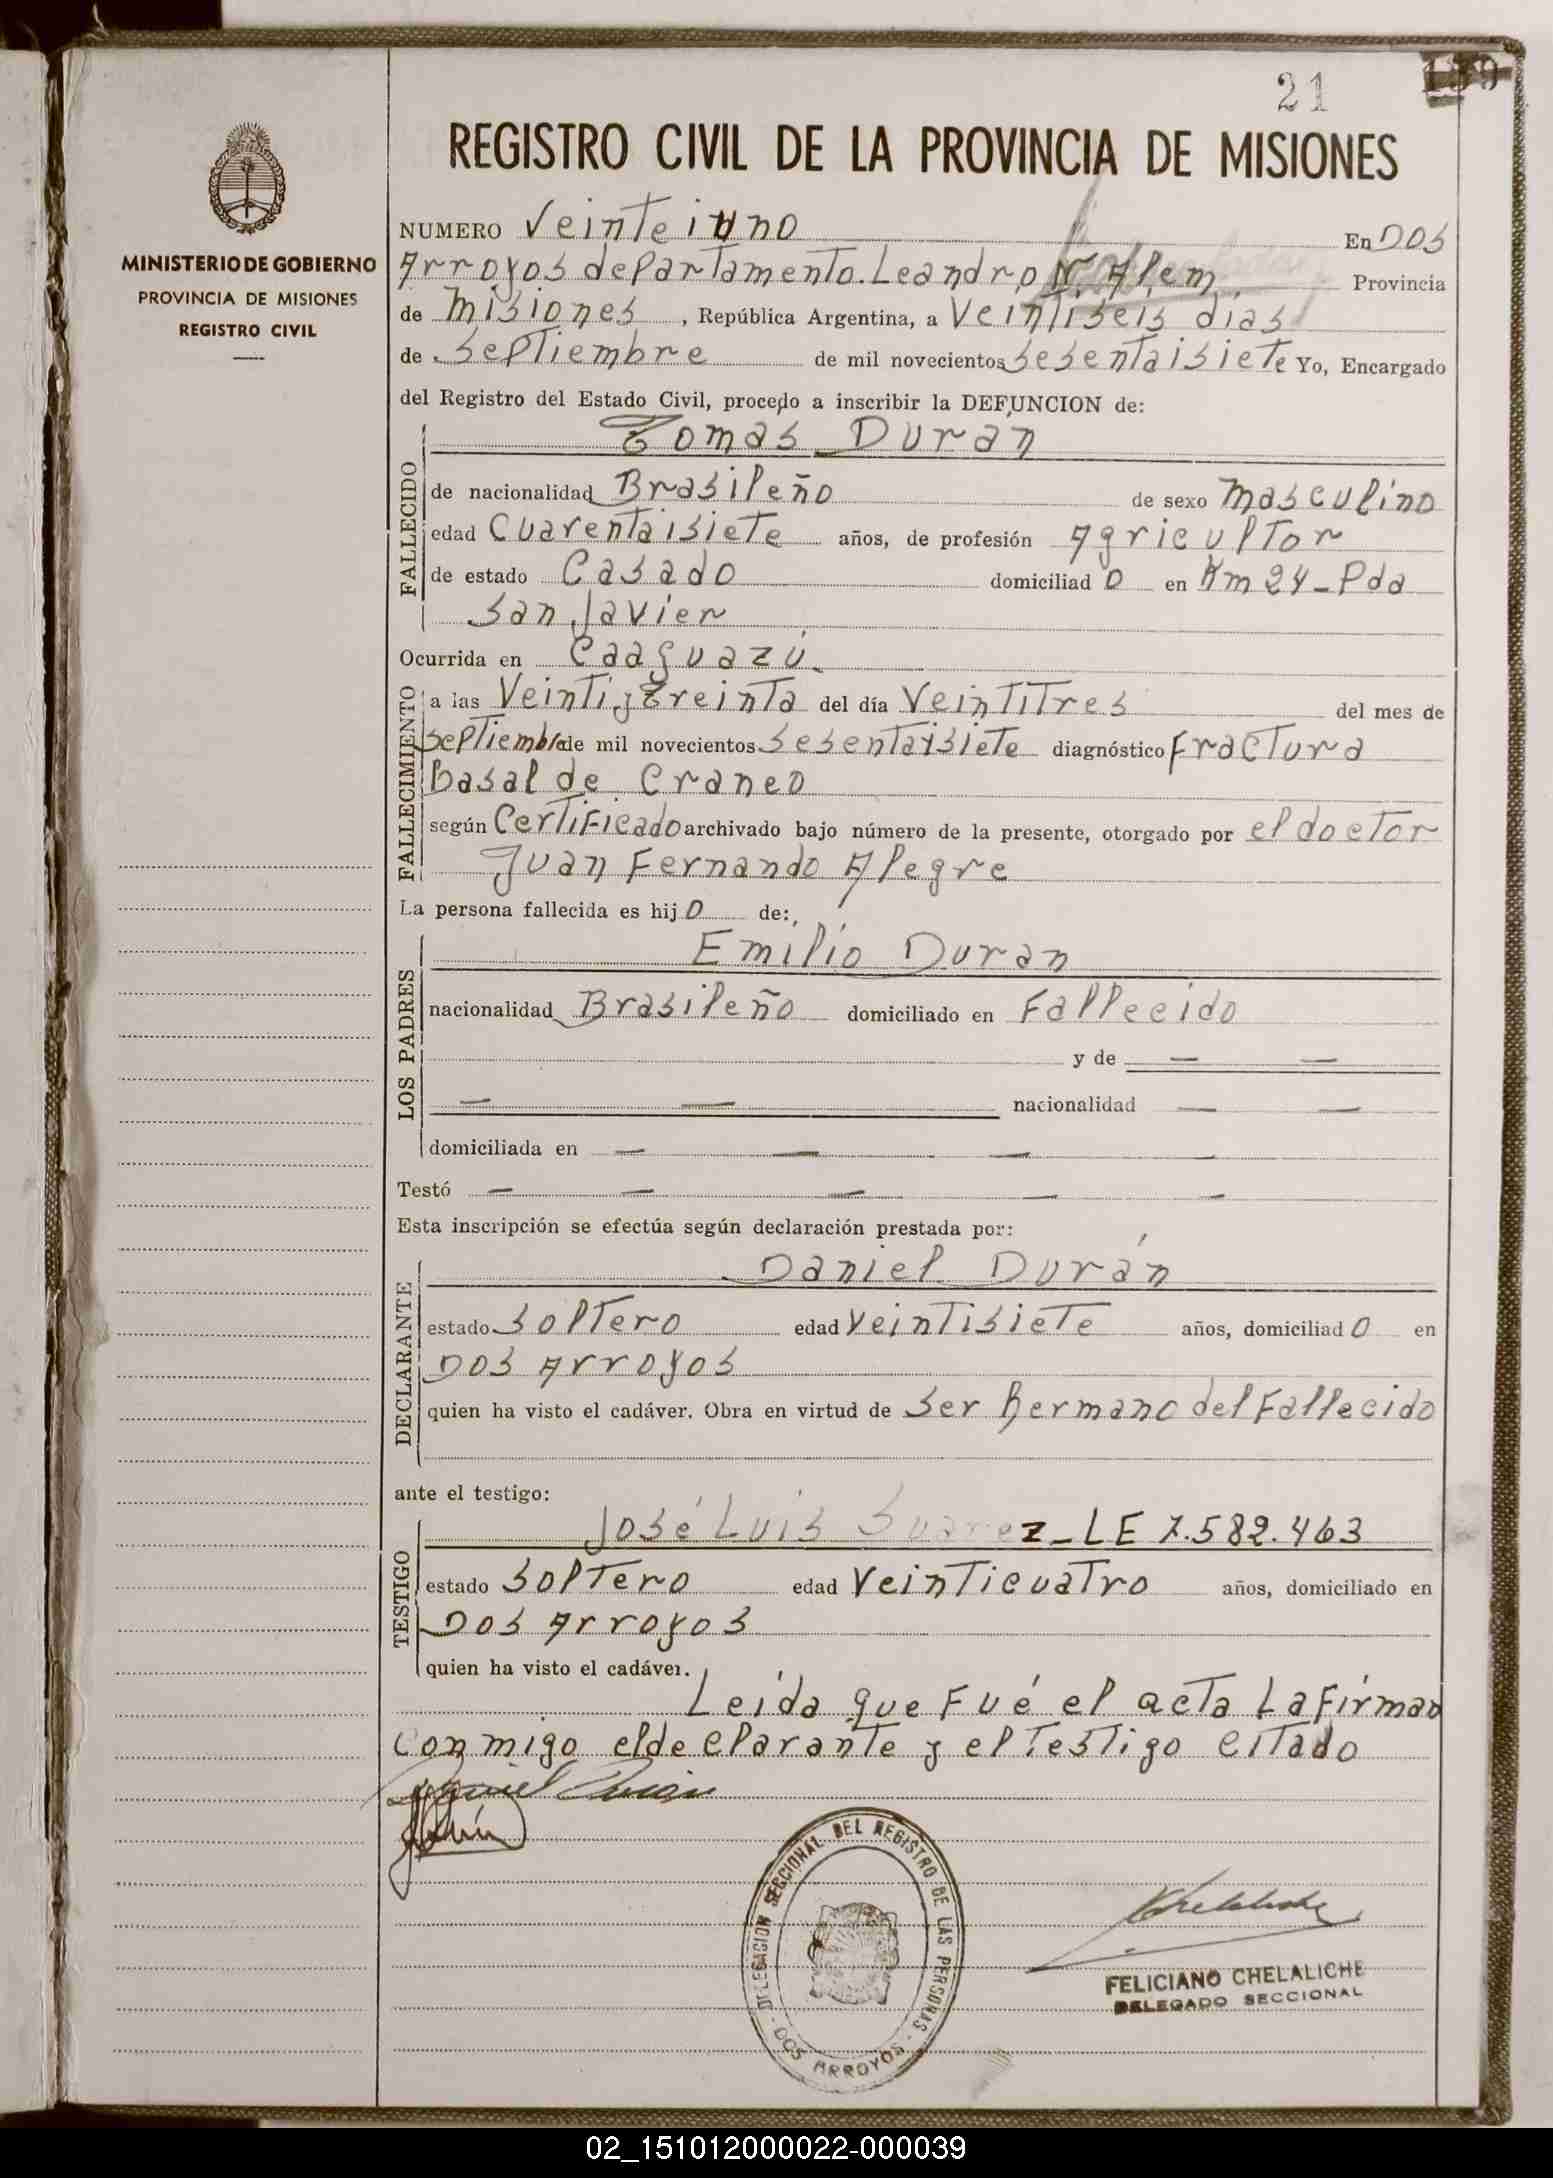 21
139
REGISTRO CIVIL DE LA PROVINCIA DE MISIONES
MINISTERIO DE GOBIERNO
PROVINCIA DE MISIONES
REGISTRO CIVIL
NUMERO Veinteiuno En Dos
Arroyos departamento Leandro N. Alem Provincia
de Misiones, República Argentina, a Veintiseis dias
de Septiembre de mil novecientos Sesentaisiete Yo, Encargado
del Registro del Estado Civil, procedo a inscribir la DEFUNCION de:
FALLECIDO
Tomas Durán
de nacionalidad Brasileño de sexo masculino
edad Cuarentaisiete años, de profesión Agricultor
de estado Casado domiciliado en Km 24 - Pda
San Javier
Ocurrida en Caaguazú.
FALLECIMIENTO
a las Veinti y treinta del día Veintitres del mes de
Septiembre de mil novecientos Sesentaisiete diagnóstico Fractura
Basal de Craneo
según Certificado archivado bajo número de la presente, otorgado por el doctor
Juan Fernando Alegre
La persona fallecida es hijo de:
LOS PADRES
Emilio Duran
nacionalidad Brasileño domiciliado en Fallecido
y de — —
— — nacionalidad — —
domiciliada en — — — —
Testó — — — — —
Esta inscripción se efectúa según declaración prestada por:
DECLARANTE
Daniel Durán
estado Soltero edad Veintisiete años, domiciliado en
Dos Arroyos
quien ha visto el cadáver. Obra en virtud de Ser hermano del Fallecido
ante el testigo:
TESTIGO
José Luis Suarez - LE 7.582.463
estado Soltero edad Veinticuatro años, domiciliado en
Dos Arroyos
quien ha visto el cadáver.
Leída que Fué el acta La Firman
conmigo el declarante y el Testigo citado
Daniel Durán
DELEGACION SECCIONAL DEL REGISTRO DE LAS PERSONAS - DOS ARROYOS -
FELICIANO CHELALICHE
DELEGADO SECCIONAL
02_151012000022-000039